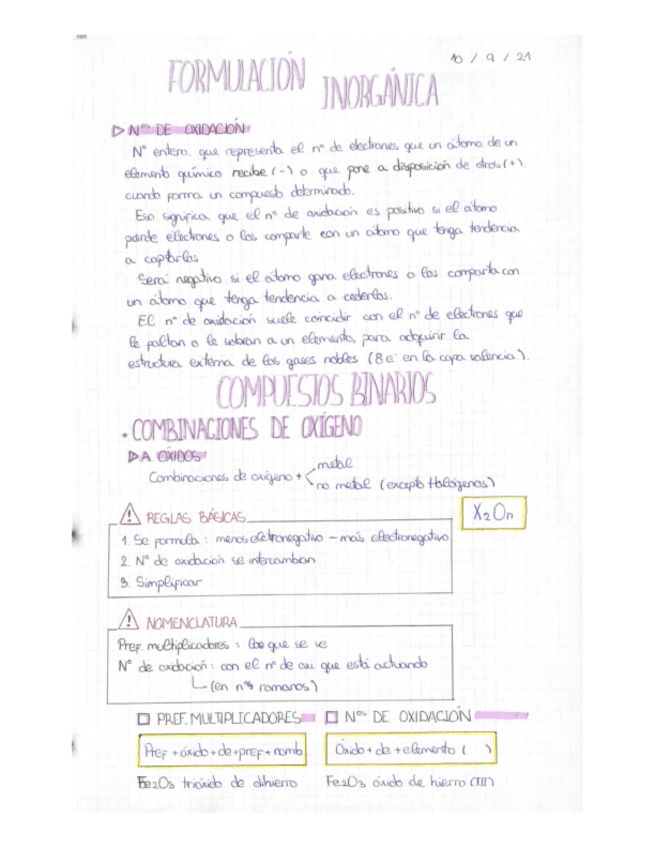 10 / 9 / 21
FORMULACIÓN INORGÁNICA
▷ Nos DE OXIDACIÓN
Nº entero, que representa el nº de electrones que un átomo de un
elemento químico recibe (-) o que pone a disposición de otros (+)
cuando forma un compuesto determinado.
Eso significa, que el nº de oxidación es positivo si el átomo
pierde electrones o los comparte con un átomo que tenga tendencia
a captarlos
Será negativo si el átomo gana electrones o los comparta con
un átomo que tenga tendencia a cederlos.
El nº de oxidación suele coincidir con el nº de electrones que
le faltan o le sobran a un elemento, para adquirir la
estructura externa de los gases nobles (8 e⁻ en la capa valencia).
COMPUESTOS BINARIOS
• COMBINACIONES DE OXÍGENO
▷ A ÓXIDOS
Combinaciones de oxígeno + metal
no metal (excepto Halógenos)
X2On
REGLAS BÁSICAS
1. Se formula: menos eletronegativo - más electronegativo
2. Nº de oxidación se intercambian
3. Simplificar
NOMENCLATURA
Pref. multiplicadores: los que se ve
Nº de oxidación: con el nº de oxi. que está actuando
(en nos romanos)
PREF. MULTIPLICADORES
Pref + óxido + de + pref + nomb
Fe2O3 trióxido de dihierro
Nos DE OXIDACIÓN
Óxido + de + elemento ( )
Fe2O3 óxido de hierro (III)